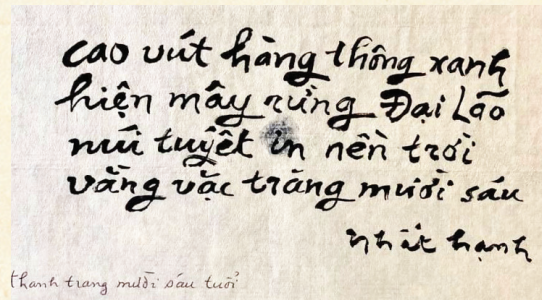 cao vút hàng thông xanh
hiện mây rừng Đại Lão
núi tuyết in nền trời
vằng vặc trăng mười sáu
nhất hạnh
thanh trang mười sáu tuổi